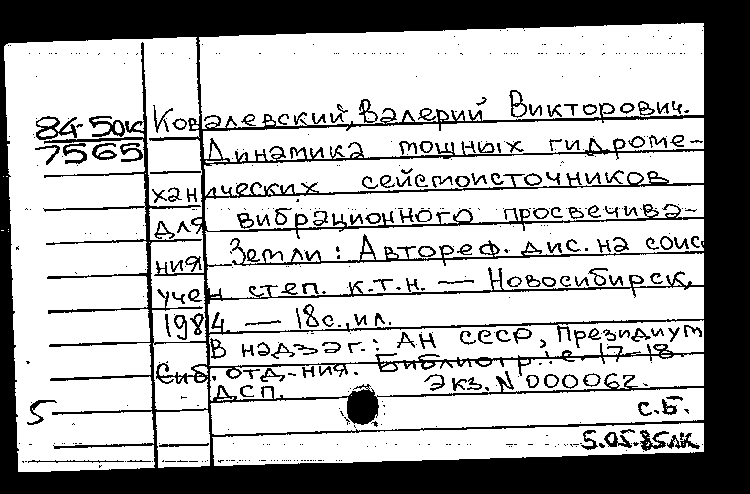 84-5ок Ковалевский, Валерий Викторович.
7565 Динамика мощных гидроме-
ханических сейсмоисточников
для вибрационного просвечива-
ния Земли : Автореф. дис. на соис
учен степ. к.т.н. — Новосибирск,
1984. — 18с., ил.
В надзаг.: АН СССР, Президиум
Сиб. отд-ния. Библиогр.: с. 17-18
ДСП. Экз. N 000062.
5
с.Б.
5.05.85лк